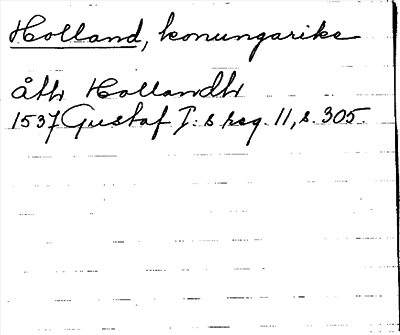 Holland, konungarike
åth Hollandh
1537 Gustaf I:s reg. 11, s. 305.